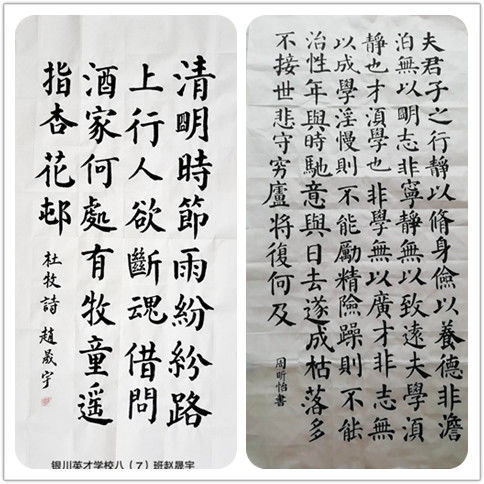 清明時節雨紛紛路
上行人欲斷魂借問
酒家何處有牧童遥
指杏花邨
杜牧詩 趙晟宇
银川英才学校八（7）班赵晟宇
夫君子之行静以脩身儉以養德非澹
泊無以明志非寧静無以致遠夫學湏
静也才湏學也非學無以廣才非志無
以成學淫慢則不能勵精險躁則不能
治性年與時馳意與日去遂成枯落多
不接世悲守窮廬將復何及
周昕怡書